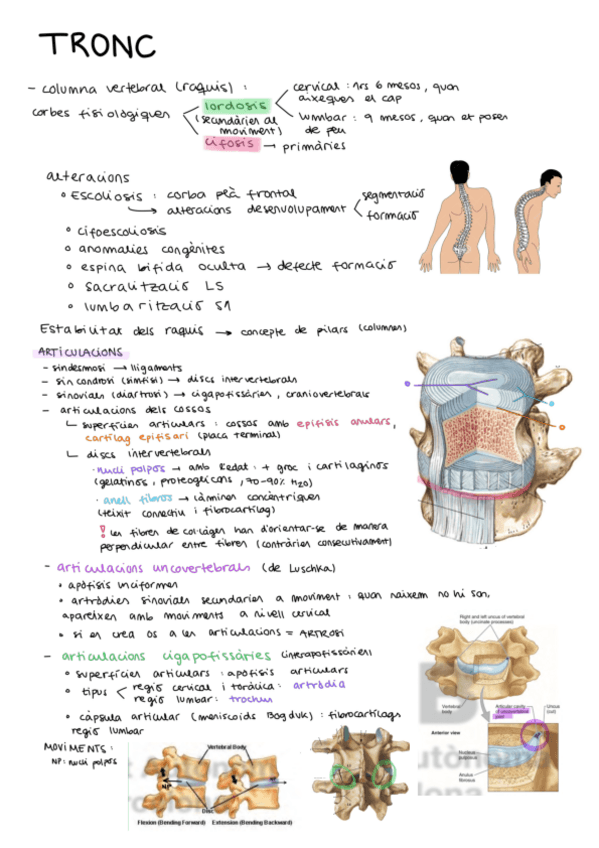 TRONC
- columna vertebral (raquis) :
corbes fisiològiques
lordosis
(secundàries al
moviment)
cervical : 1rs 6 mesos, quan
aixeques el cap
lumbar : 9 mesos, quan et poses
de peu
cifosis → primàries
alteracions
• Escoliosis : corba plà frontal
alteracions desenvolupament
segmentació
formació
• cifoescoliosis
• anomalies congènites
• espina bífida oculta → defecte formació
• sacralització L5
• lumbarització S1
Estabilitat dels raquis → concepte de pilars (columnes)
ARTICULACIONS
- sindesmosi → lligaments
- sincondrosi (símfisi) → discs intervertebrals
- sinovials (diartrosi) → cigapofissàries, craniovertebrals
- articulacions dels cossos
superfícies articulars : cossos amb epífisis anulars,
cartílag epifisari (placa terminal)
discs intervertebrals
· nucli polpós → amb l'edat : + groc i cartilaginós
(gelatinós, proteoglicans, 70-90% H2O)
· anell fibrós → làmines concèntriques
(teixit connectiu i fibrocartílag)
! Les fibres de col·làgen han d'orientar-se de manera
perpendicular entre fibres (contràries consecutivament)
- articulacions uncovertebrals (de Luschka)
• apòfisis unciformes
• artròdies sinovials secundàries a moviment : quan naixem no hi són,
apareixen amb moviments a nivell cervical
• si es crea os a les articulacions = ARTROSI
- articulacions cigapofissàries (interapofissàries)
• superfícies articulars : apòfisis articulars
• tipus
regió cervical i toràcica : artròdia
regió lumbar : trochus
• càpsula articular (meniscoids Bogduk) : fibrocartílags
regió lumbar
MOVIMENTS :
NP : nucli polpós
Vertebral Body
NP
NP
Disc
Flexion (Bending Forward)
Extension (Bending Backward)
Right and left uncus of vertebral
body (uncinate processes)
Vertebral
body
Articular cavity
Uncus
(cut)
Anterior view
Nucleus
pulposus
Anulus
fibrosus